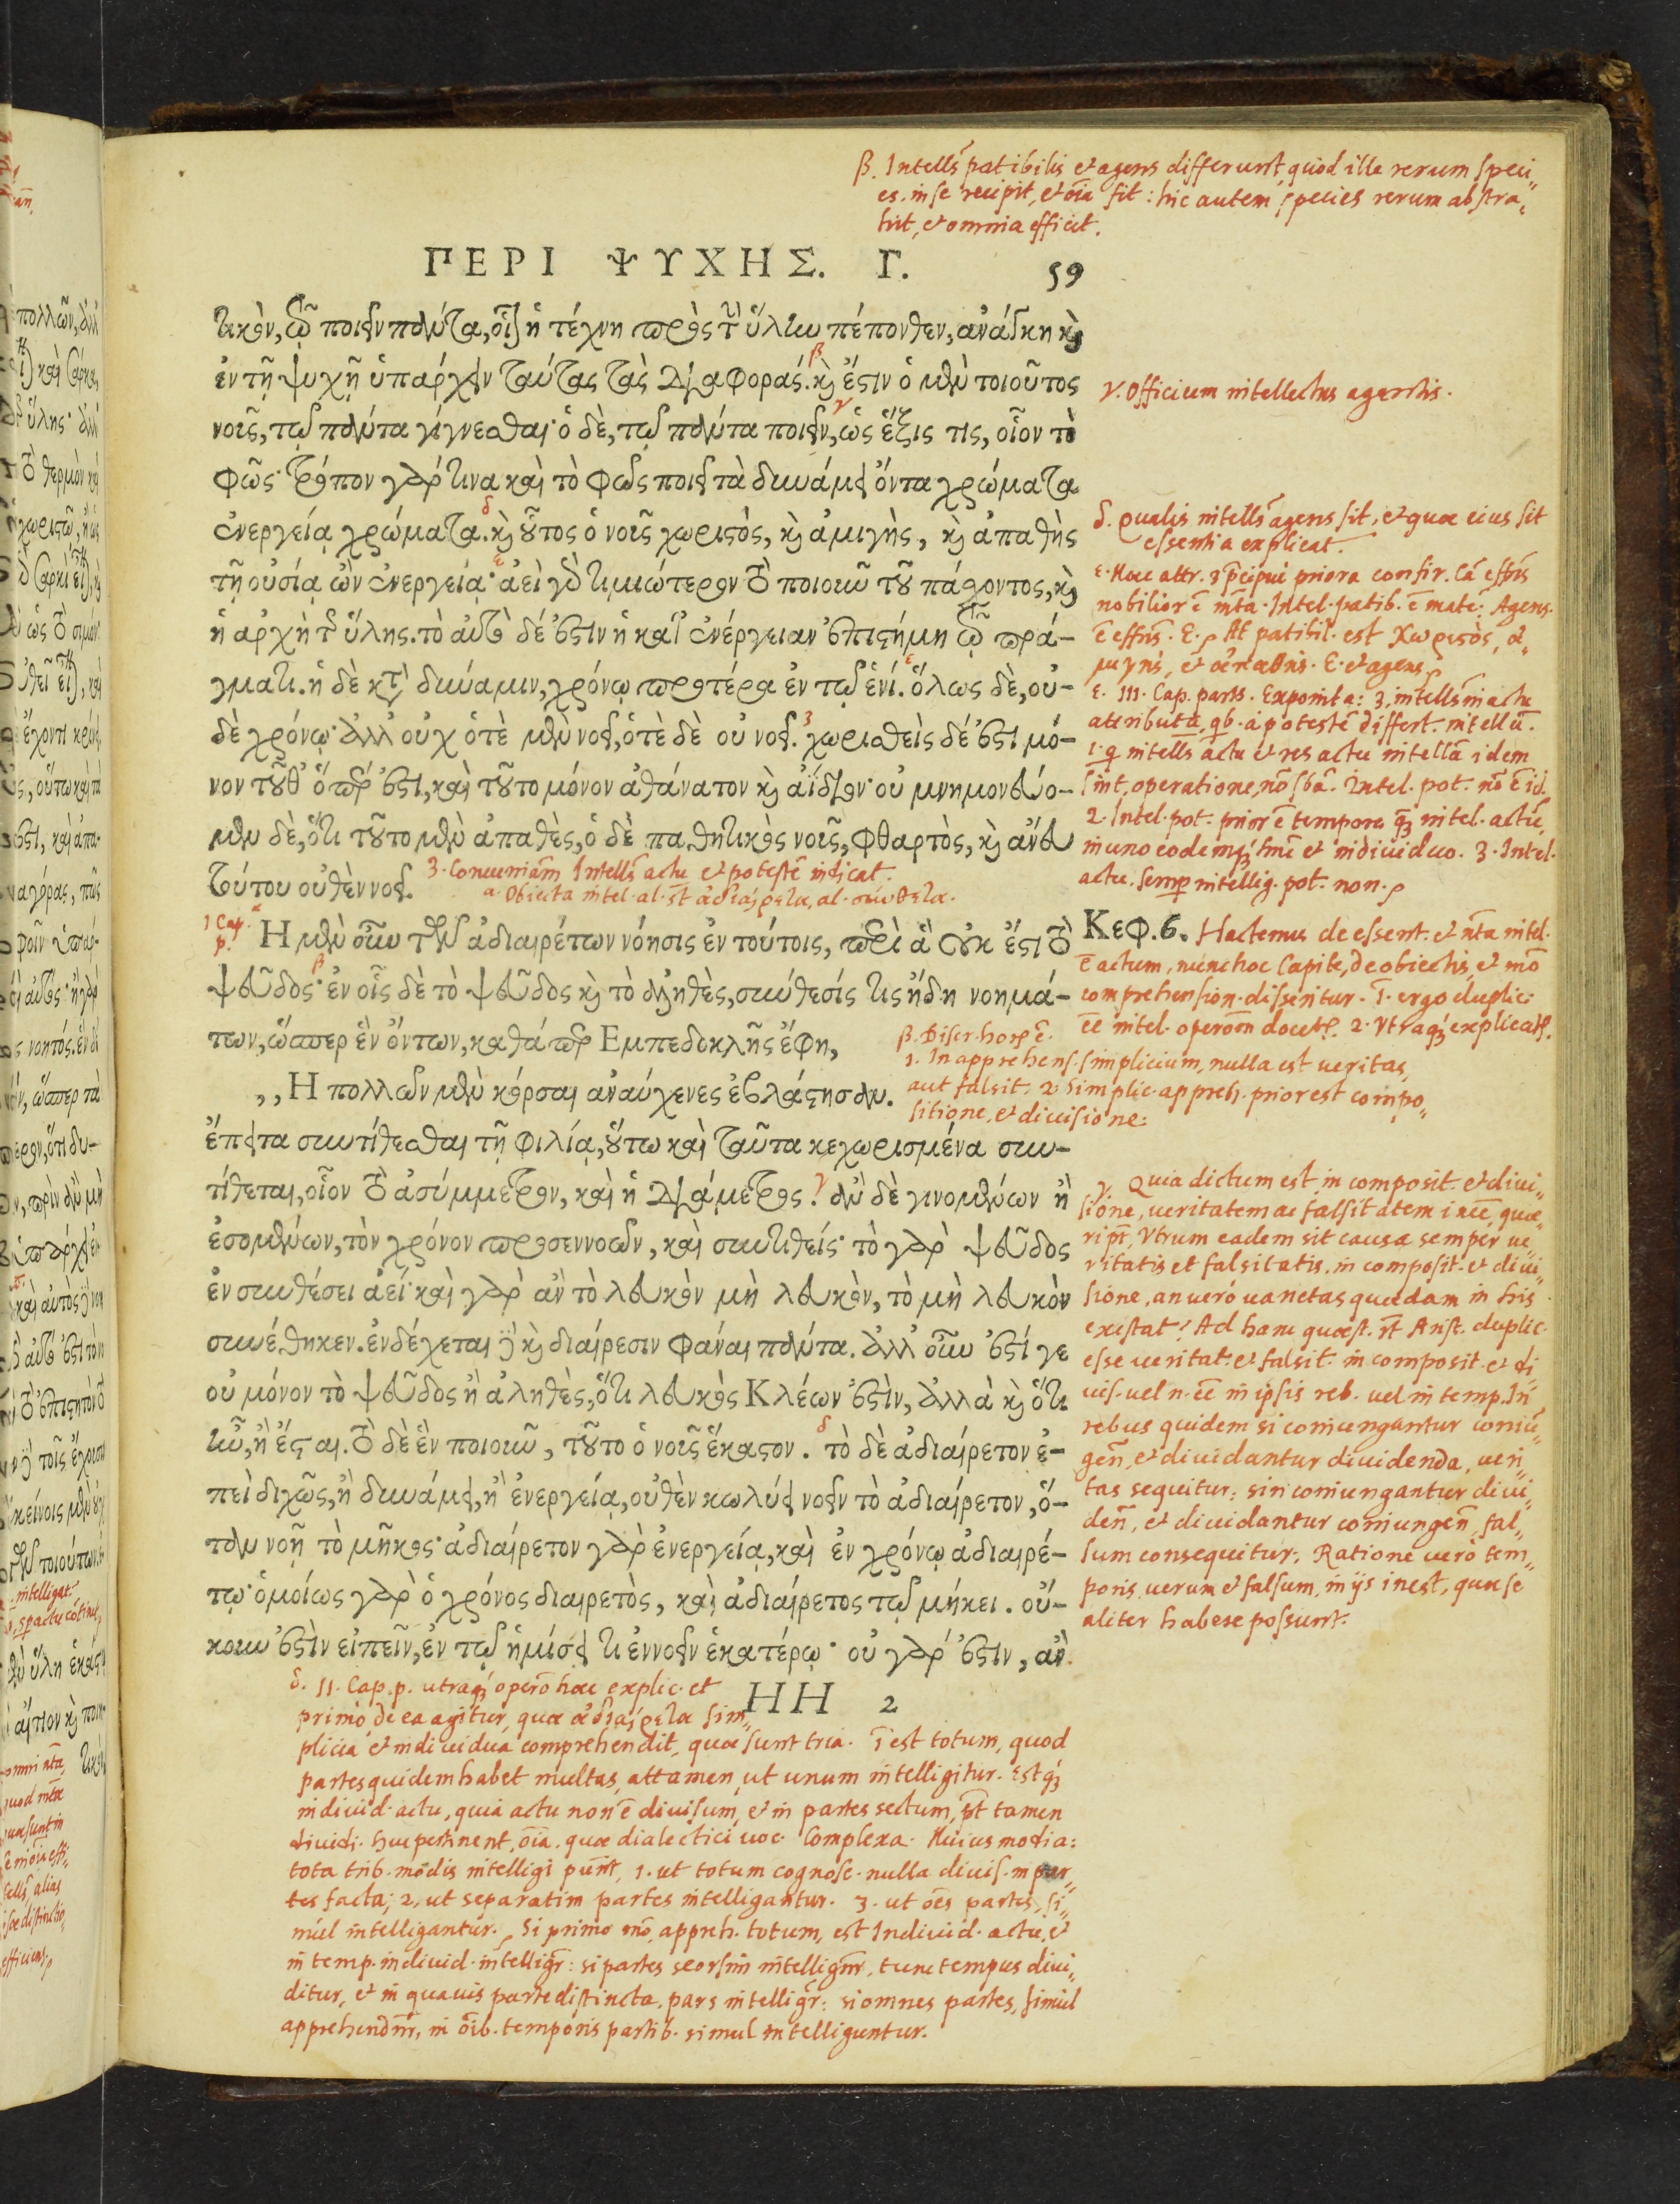 β. Intells patibilis et agens differunt, quod ille rerum speci„
es. in se recipit, et oīa fit : hic autem species rerum abstra„
hit, et omnia efficit.
ΠΕΡΙ ΨΥΧΗΣ. Γ. 59
τικὸν, τῷ ποιεῖν πάντα, οἷον ἡ τέχνη πρὸς τὴν ὕλην πέπονθεν, ἀνάγκη καὶ
ἐν τῇ ψυχῇ ὑπάρχειν ταύτας τὰς διαφοράς. καὶ ἔστιν ὁ μὲν τοιοῦτος
νοῦς, τῷ πάντα γίγνεσθαι· ὁ δὲ, τῷ πάντα ποιεῖν, ὡς ἕξις τις, οἷον τὸ
φῶς· τρόπον γάρ τινα καὶ τὸ φῶς ποιεῖ τὰ δυνάμει ὄντα χρώματα
ἐνεργείᾳ χρώματα. καὶ οὗτος ὁ νοῦς χωριστὸς, καὶ ἀμιγὴς, καὶ ἀπαθὴς
τῇ οὐσίᾳ ὢν ἐνεργείᾳ· ἀεὶ γὰρ τιμιώτερον τὸ ποιοῦν τοῦ πάσχοντος, καὶ
ἡ ἀρχὴ τῆς ὕλης. τὸ αὐτὸ δέ ἐστιν ἡ κατ' ἐνέργειαν ἐπιστήμη τῷ πρά-
γματι. ἡ δὲ κατὰ δύναμιν, χρόνῳ προτέρα ἐν τῷ ἑνί. ὅλως δὲ, οὐ-
δὲ χρόνῳ· ἀλλ' οὐχ ὁτὲ μὲν νοεῖ, ὁτὲ δὲ οὐ νοεῖ. χωρισθεὶς δέ ἐστι μό-
νον τοῦθ' ὅπερ ἐστι, καὶ τοῦτο μόνον ἀθάνατον καὶ ἀΐδιον· οὐ μνημονεύο-
μεν δὲ, ὅτι τοῦτο μὲν ἀπαθὲς, ὁ δὲ παθητικὸς νοῦς, φθαρτὸς, καὶ ἄνευ
τούτου οὐθὲν νοεῖ.
3. Conueniām Intells actu et potestē indicat.
a. Obiecta intel. al. st ἀδιαίρετα, al. σύνθετα.
1 Cap.
p.
Η μὲν οὖν τῶν ἀδιαιρέτων νόησις ἐν τούτοις, περὶ ἃ οὐκ ἔστι τὸ
ψεῦδος· ἐν οἷς δὲ τὸ ψεῦδος καὶ τὸ ἀληθὲς, σύνθεσίς τις ἤδη νοημά-
των, ὥσπερ ἓν ὄντων, καθάπερ Εμπεδοκλῆς ἔφη,
,, Η πολλῶν μὲν κόρσαι ἀναύχενες ἐβλάστησαν.
ἔπειτα συντίθεσθαι τῇ φιλίᾳ, οὕτω καὶ ταῦτα κεχωρισμένα συν-
τίθεται, οἷον τὸ ἀσύμμετρον, καὶ ἡ διάμετρος. ἂν δὲ γινομένων ἢ
ἐσομένων, τὸν χρόνον προσεννοῶν, καὶ συντιθείς· τὸ γὰρ ψεῦδος
ἐν συνθέσει ἀεί· καὶ γὰρ ἂν τὸ λευκὸν μὴ λευκὸν, τὸ μὴ λευκὸν
συνέθηκεν. ἐνδέχεται δὲ καὶ διαίρεσιν φάναι πάντα. ἀλλ' οὖν ἐστί γε
οὐ μόνον τὸ ψεῦδος ἢ ἀληθὲς, ὅτι λευκὸς Κλέων ἐστὶν, ἀλλὰ καὶ ὅτι
ἦν, ἢ ἔσται. τὸ δὲ ἓν ποιοῦν, τοῦτο ὁ νοῦς ἕκαστον. τὸ δὲ ἀδιαίρετον ἐ-
πεὶ διχῶς, ἢ δυνάμει, ἢ ἐνεργείᾳ, οὐθὲν κωλύει νοεῖν τὸ ἀδιαίρετον, ὅ-
ταν νοῇ τὸ μῆκος· ἀδιαίρετον γὰρ ἐνεργείᾳ, καὶ ἐν χρόνῳ ἀδιαιρέ-
τῳ· ὁμοίως γὰρ ὁ χρόνος διαιρετὸς, καὶ ἀδιαίρετος τῷ μήκει. οὔ-
κουν ἐστὶν εἰπεῖν, ἐν τῷ ἡμίσει τι ἐννοεῖν ἑκατέρῳ· οὐ γάρ ἐστιν, ἂν
HH 2
γ. Officium intellectus agentis.
δ. Qualis intells agens sit, et quae eius sit
essentia explicat.
ε. Hoc attr. 3 pcipui priora confir. Cā effns
nobilior ē mta. Intel. patib. ē mate: Agens.
ē effns. E. At patibil. est χωριστὸς, ἀ„
μιγής, et ἀπαθής. E. et agens
ε. III. Cap. pars. Exponit a: 3, intells in actu
attributa, qb. a potestē differt. intellū.
1. q intells actu et res actu intellā idem
sint, operatione, nō sbā. Intel. pot. nō ē id.
2. Intel. pot. prior ē tempore q̃ intel. actū,
in uno eodemq́ hmē et indiuiduo. 3. Intel.
actu. semp intellig. pot. non.
Κεφ. 6. Hactenus de essent. et nta intel.
ē actum, nunc hoc Capite, de obiectis, et mō
comprehension. disseritur. I. ergo duplic.
ēē intel. operom docet. 2. Vtraq́ explicat.
β. Discr. horp ē.
1. In apprehens. simplicium, nulla est ueritas,
aut falsit. 2. Simplic. appreh. prior est compo„
sitione, et diuisione:
γ. Quia dictum est, in composit. et diui„
sione, ueritatem ac falsitatem inēē, quae„
ript, Vtrum eadem sit causa semper ue„
ritatis et falsitatis. in composit. et diui„
sione, an uerò uarietas quaedam in his
existat? Ad hanc quaest. rt Arist. duplic.
esse ueritat. et falsit. in composit. et di
uis. uel n. ēē in ipsis reb. uel in temp. In
rebus quidem si coniungantur coniū„
gen̄, et diuidantur diuidenda, ueri„
tas sequitur: sin coniungantur diui„
den̄, et diuidantur coniungen̄, fal„
sum consequitur. Ratione uerò tem„
poris, uerum et falsum, in ijs inest, quae se
aliter habere possunt.
δ. II. Cap. p. utraq́ operō hac explic. et
primò de ea agitur, quae ἀδιαίρετα sim„
plicia et indiuidua comprehendit, quae sunt tria. I est totum, quod
partes quidem habet multas, attamen, ut unum intelligitur. Estq́
indiuid. actu, quia actu non ē diuisum, et in partes sectum, pt tamen
diuidi. huc pertinent, oīa. quae dialectici uoc. Complexa. Huiusmodi a:
tota trib. modis intelligi pūnt, 1. ut totum cognosc. nulla diuis. in par„
tes facta; 2, ut separatim partes intelligantur. 3. ut oēs partes, si„
mul intelligantur. Si primo mō, appreh. totum, est Indiuid. actu, et
in temp. indiuid. intelligr̄: si partes seorsim intellign̄r, tunc tempus diui„
ditur, et in quauis parte distincta, pars intelligr̄: si omnes partes, simul
apprehendn̄r, in oīb. temporis partib. simul intelliguntur.